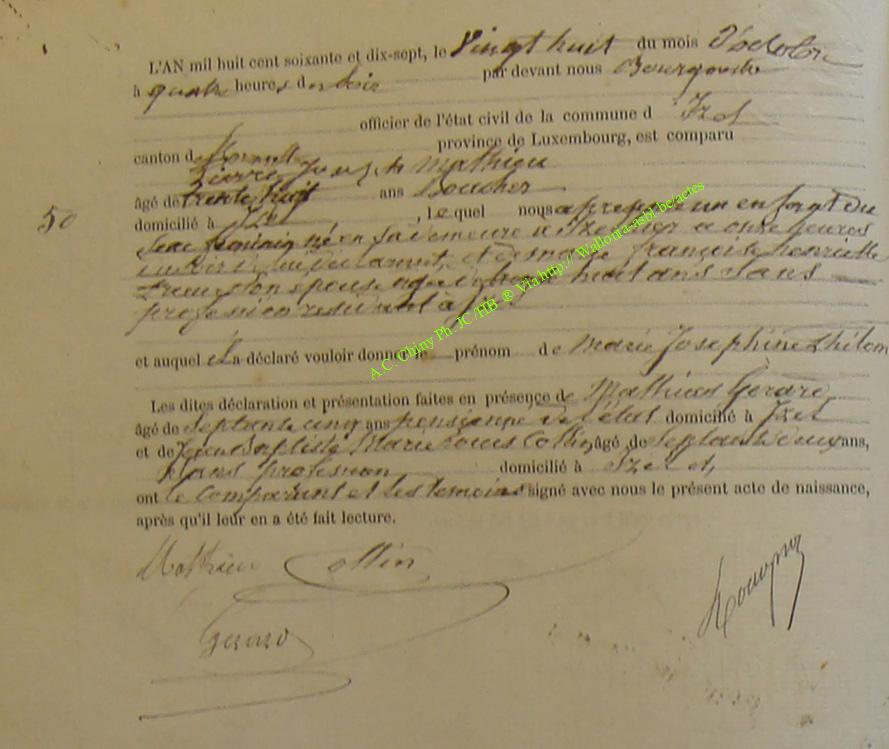 L'AN mil huit cent soixante et dix-sept, le Vingt huit du mois d'octobre
à quatre heures du soir par devant nous
officier de l'état civil de la commune d Izel
canton de province de Luxembourg, est comparu
Pierre Joseph Mathieu
âgé de trente huit ans Boucher
50
domicilié à Izel, lequel nous a présenté un enfant du
sexe féminin né en sa demeure à Izel hier à onze heures
du soir de lui déclarant, et de françoise henriette
son épouse agée de huit ans sans
profession résidant à Izel
et auquel il a déclaré vouloir donner le prénom de Marie Josephine
Les dites déclaration et présentation faites en présence de Mathias Gerard
âgé de septante cinq ans pensionné de l'état domicilié à Izel
et de Jean Baptiste Marie Louis Collin, âgé de septante deux ans,
sans profession domicilié à Izel et,
ont le Comparant et les témoins signé avec nous le présent acte de naissance,
après qu'il leur en a été fait lecture.
Mathieu Collin
Gerard
A.C. Chiny Ph. JC/HB ® Via http://Wallonia-asbl.be/actes